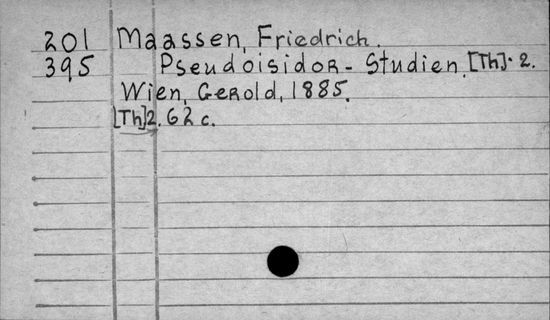 201 Maassen, Friedrich.
395 Pseudoisidor - Studien. [Th]. 2.
Wien, Gerold, 1885.
[Th]2. 62 c.